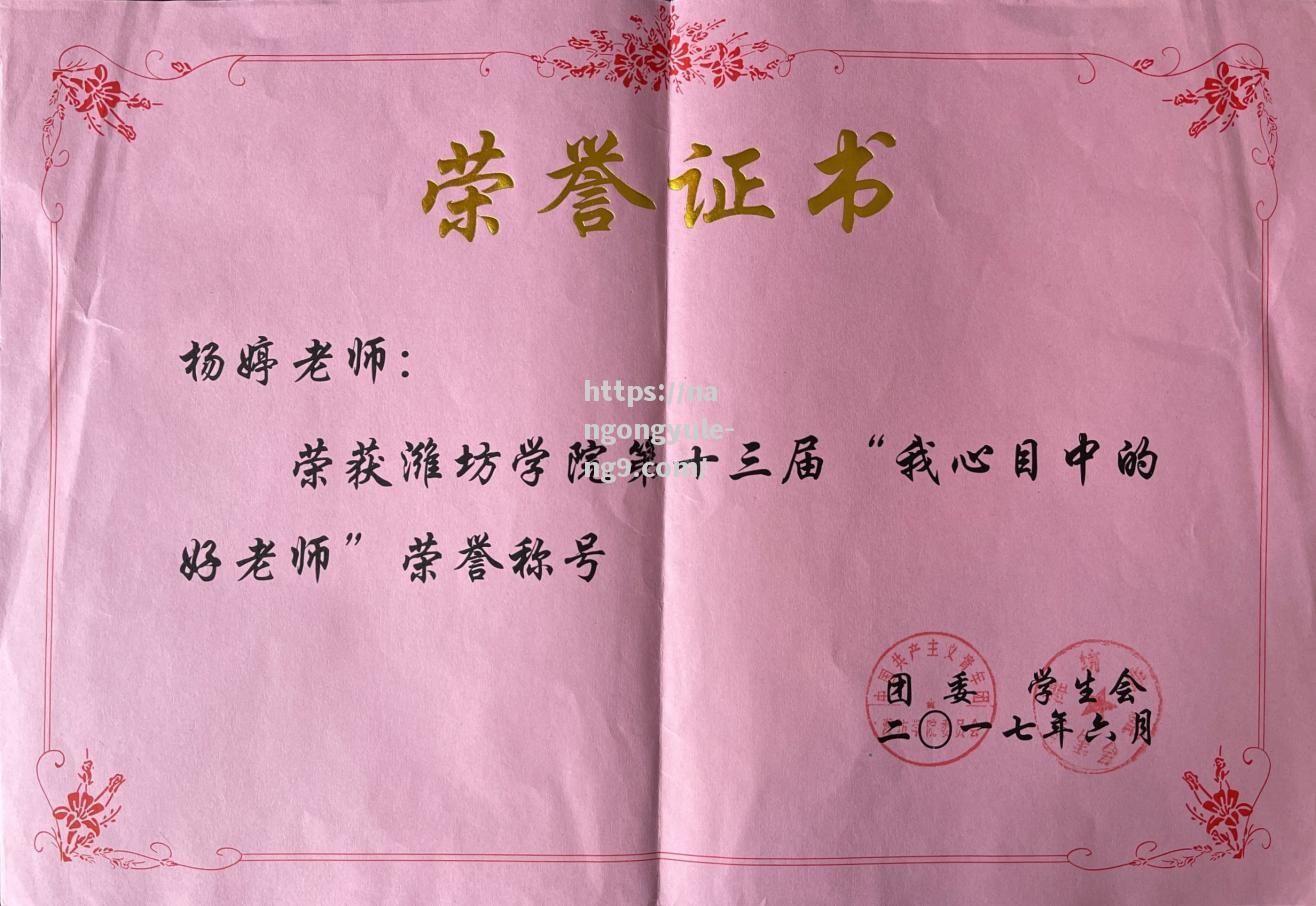 荣誉证书
杨婷老师：
https://na
ngongyule-
ng9.com/
荣获潍坊学院第十三届“我心目中的
好老师”荣誉称号
中国共产主义青年团
潍坊学院委员会
团 委 学生会
二〇一七年六月